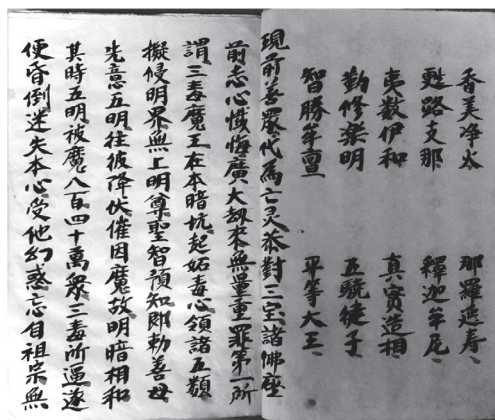 香美净太 那羅延寿
甦路支那 釋迦牟尼
夷数伊和 真實造相
勤修樂明 五驍徒子
智勝年亶 平等大王
現前善眾代為亡灵恭對三宝諸佛座
前志心懺悔廣大刼来無量重罪第一所
謂三毒魔王在本暗坑起妬毒心領諸五類
擬侵明界無上明尊聖智預知即勅善母
先意五明往彼降伏催因魔故明暗相和
其時五明被魔八百四十萬眾三毒所逼遂
便昏倒迷失本心受他幻惑忘自祖宗無